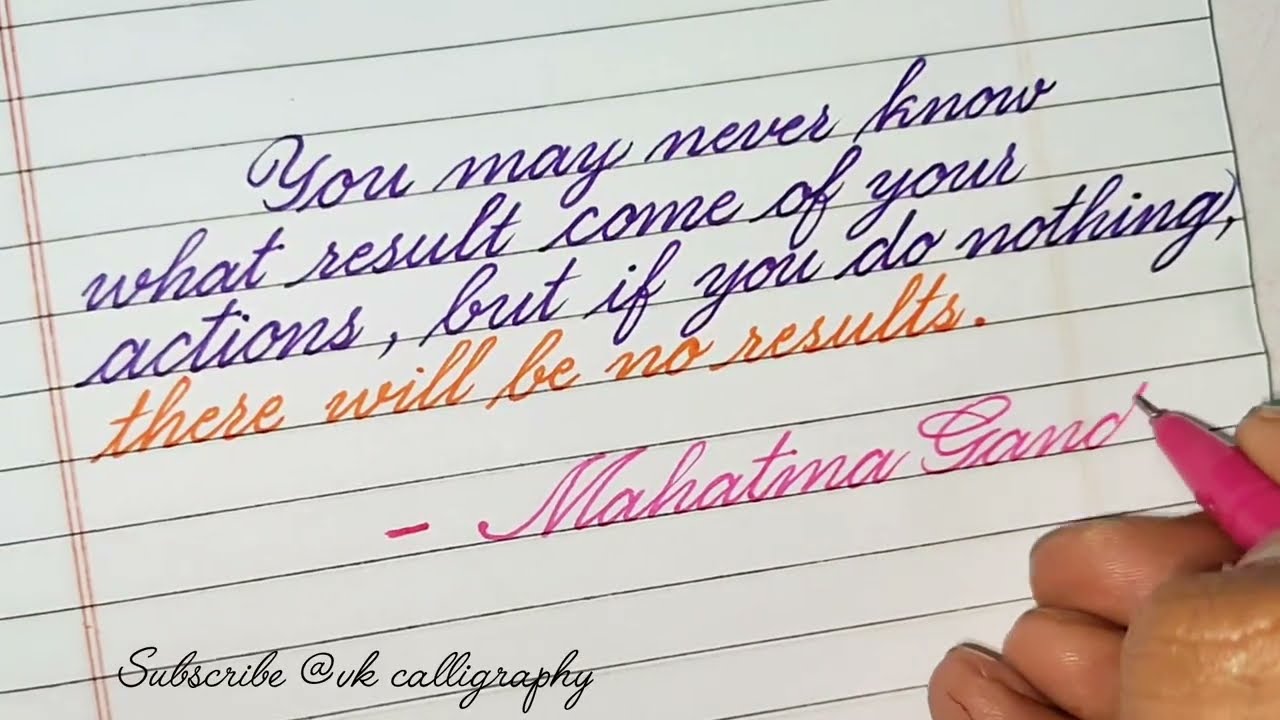 You may never know
what result come of your
actions, but if you do nothing,
there will be no results.
- Mahatma Gand
Subscribe @vk calligraphy